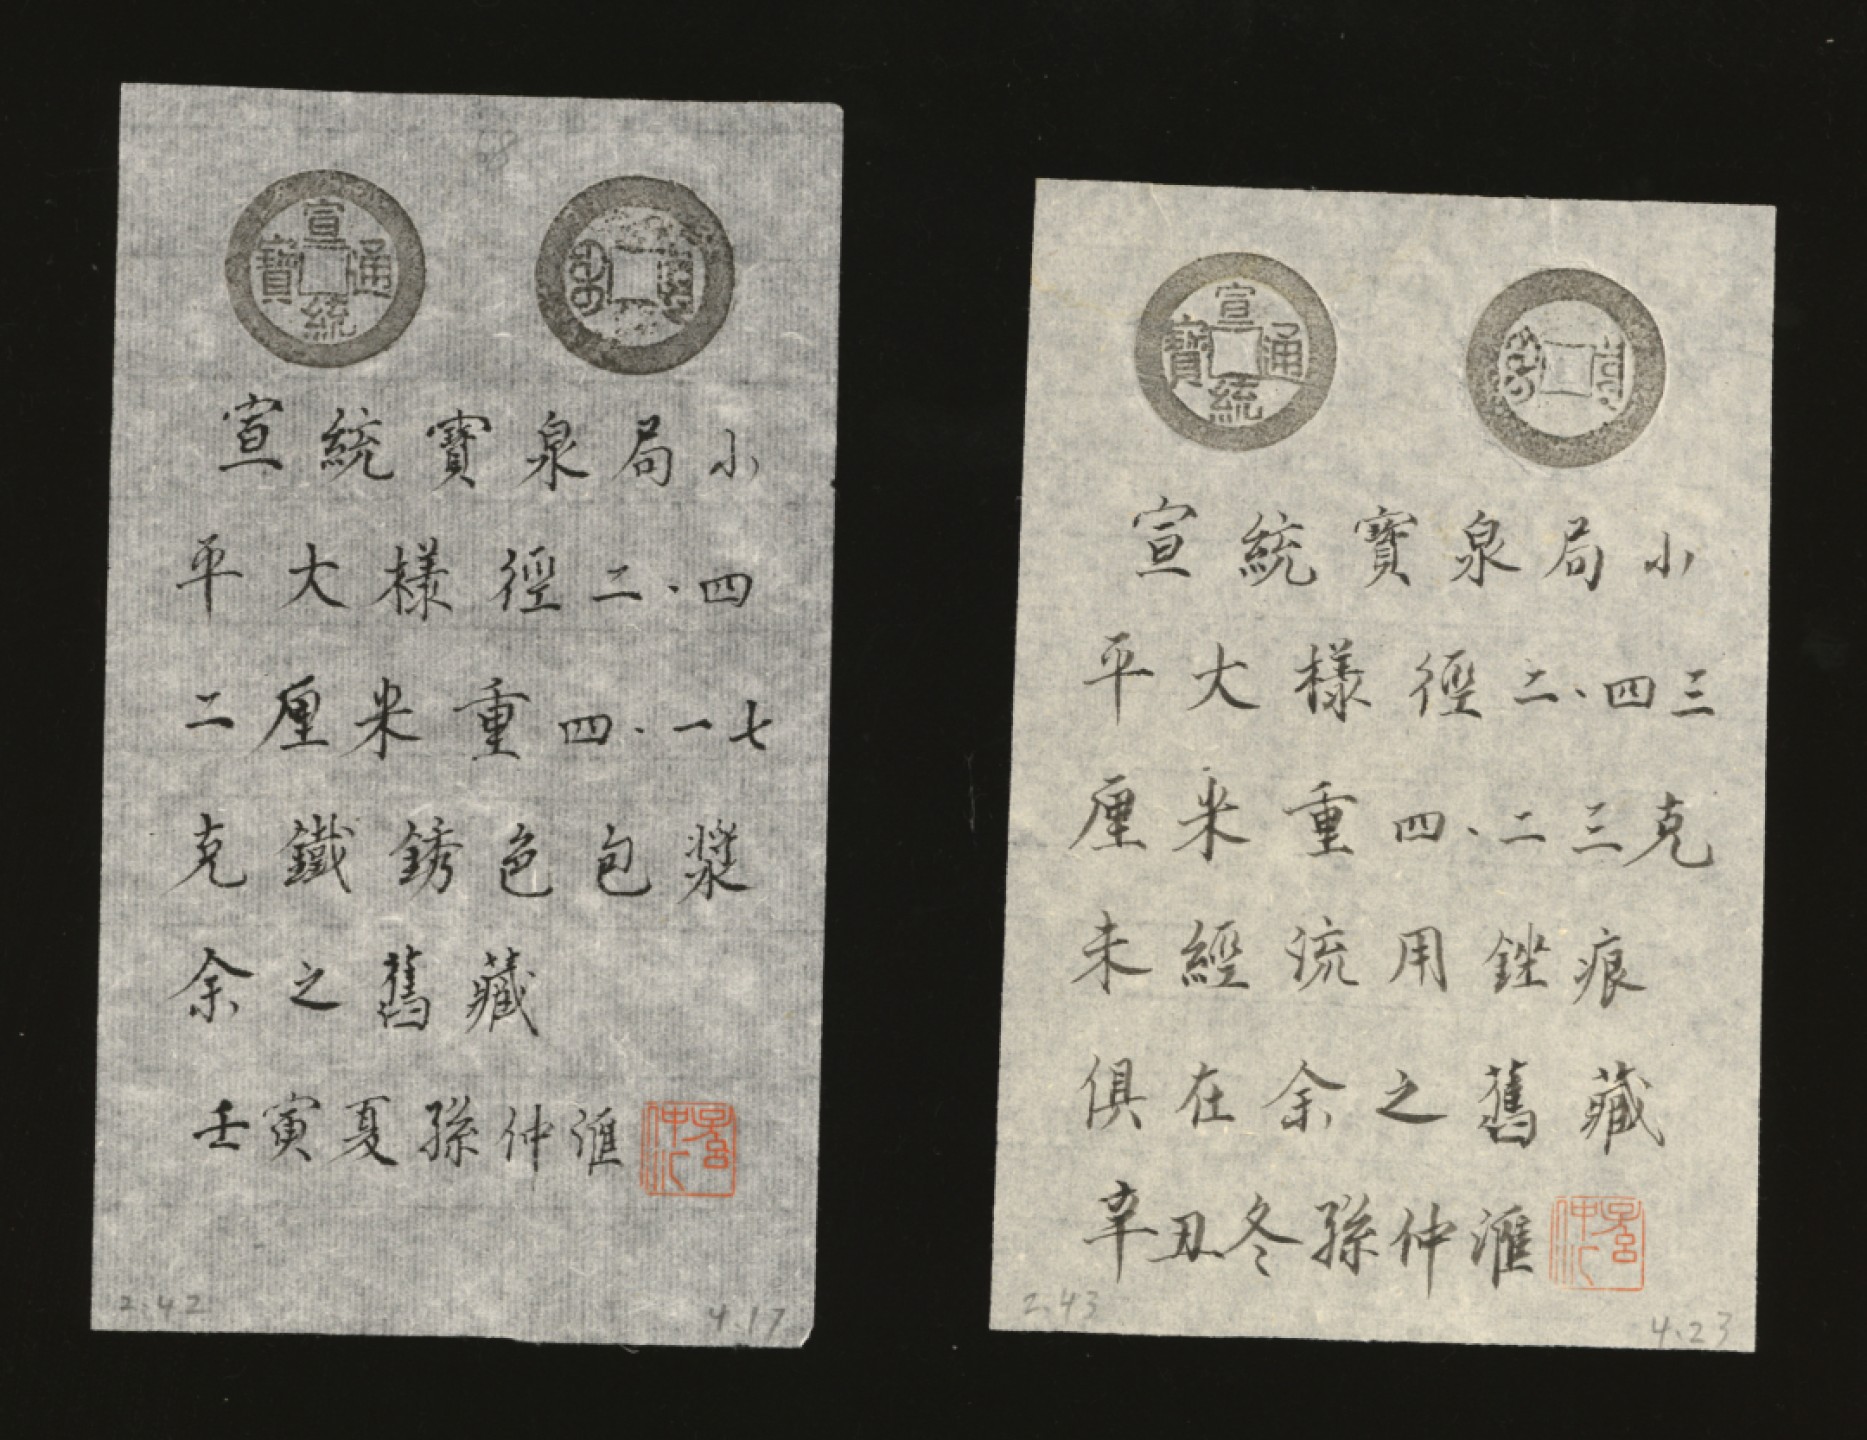 68
宣統通寶
宣統寶泉局小
平大様徑二.四
二厘米重四.一七
克鐵銹色包漿
余之舊藏
壬寅夏孫仲滙
2.42
4.17
宣統通寶
宣統寶泉局小
平大様徑二.四三
厘米重四.二三克
未經流用銼痕
俱在余之舊藏
辛丑冬孫仲滙
2.43
4.23